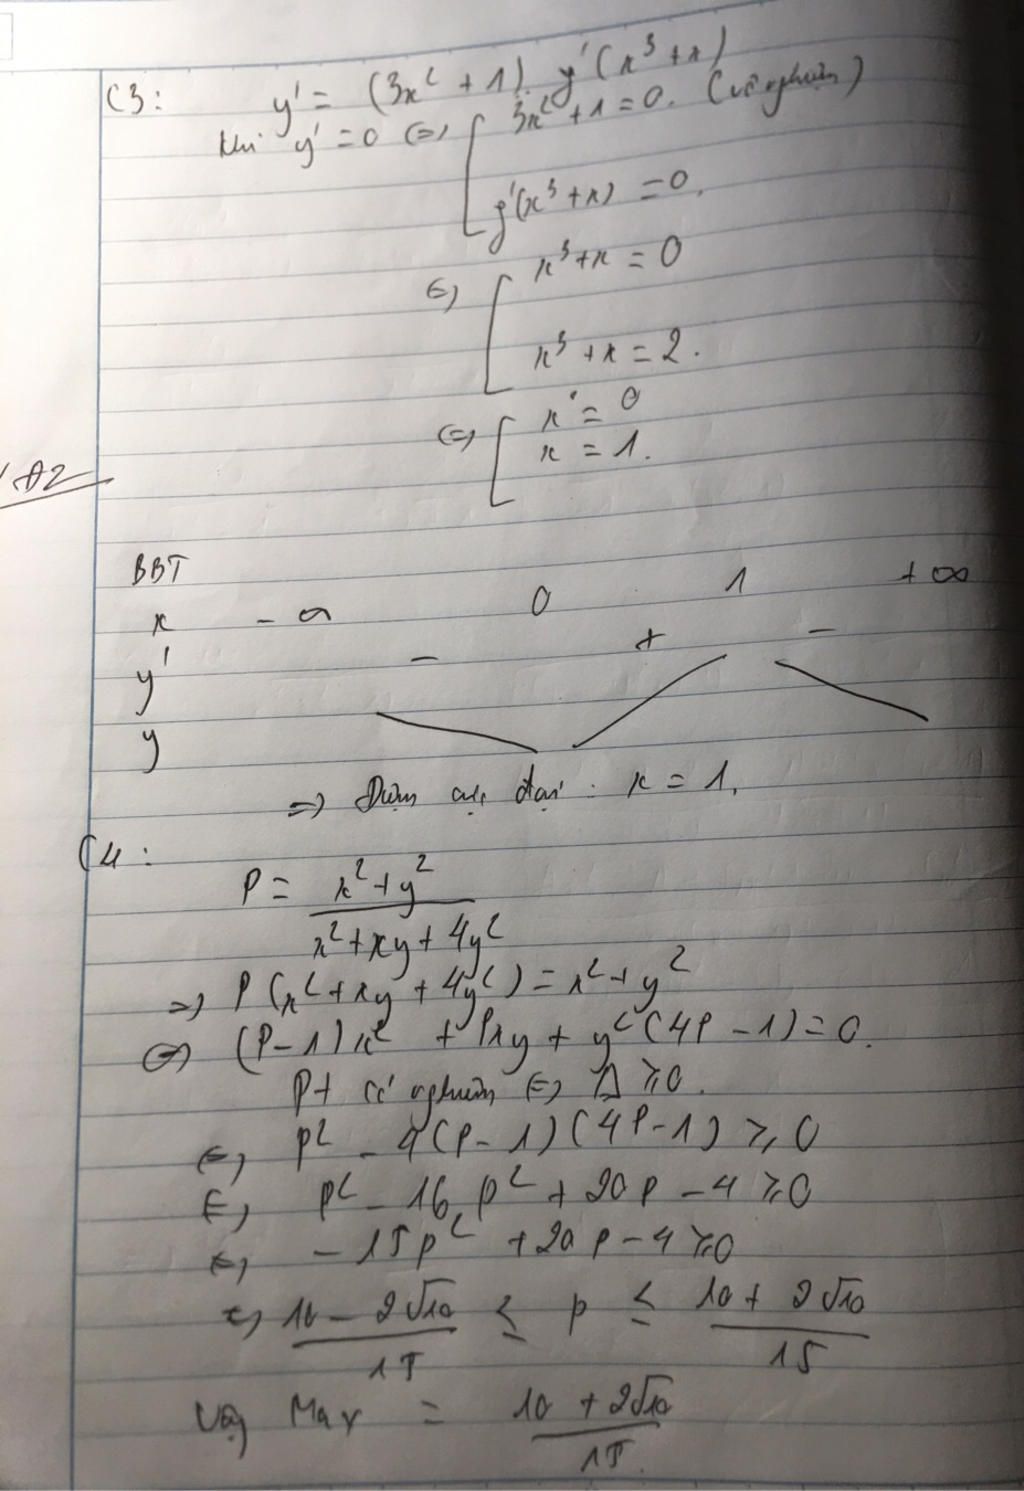 C3: y' = (3x² + 1). g'(x³ + x)
khi y' = 0 <=> [ 3x² + 1 = 0. (vô nghiệm)
g'(x³ + x) = 0.
<=> [ x³ + x = 0
x³ + x = 2.
<=> [ x = 0
x = 1.
A2
BBT
x -∞ 0 1 +∞
y' - + -
y
=> Điểm cực đại : x = 1.
C4 :
P = (x² + y²) / (x² + xy + 4y²)
=> P (x² + xy + 4y²) = x² + y²
<=> (P - 1) x² + Pxy + y² (4P - 1) = 0.
Pt có nghiệm <=> Δ ≥ 0.
<=> P² - 4(P - 1)(4P - 1) ≥ 0
<=> P² - 16P² + 20P - 4 ≥ 0
<=> -15P² + 20P - 4 ≥ 0
<=> (10 - 2√10) / 15 ≤ P ≤ (10 + 2√10) / 15
Vậy Max = (10 + 2√10) / 15.